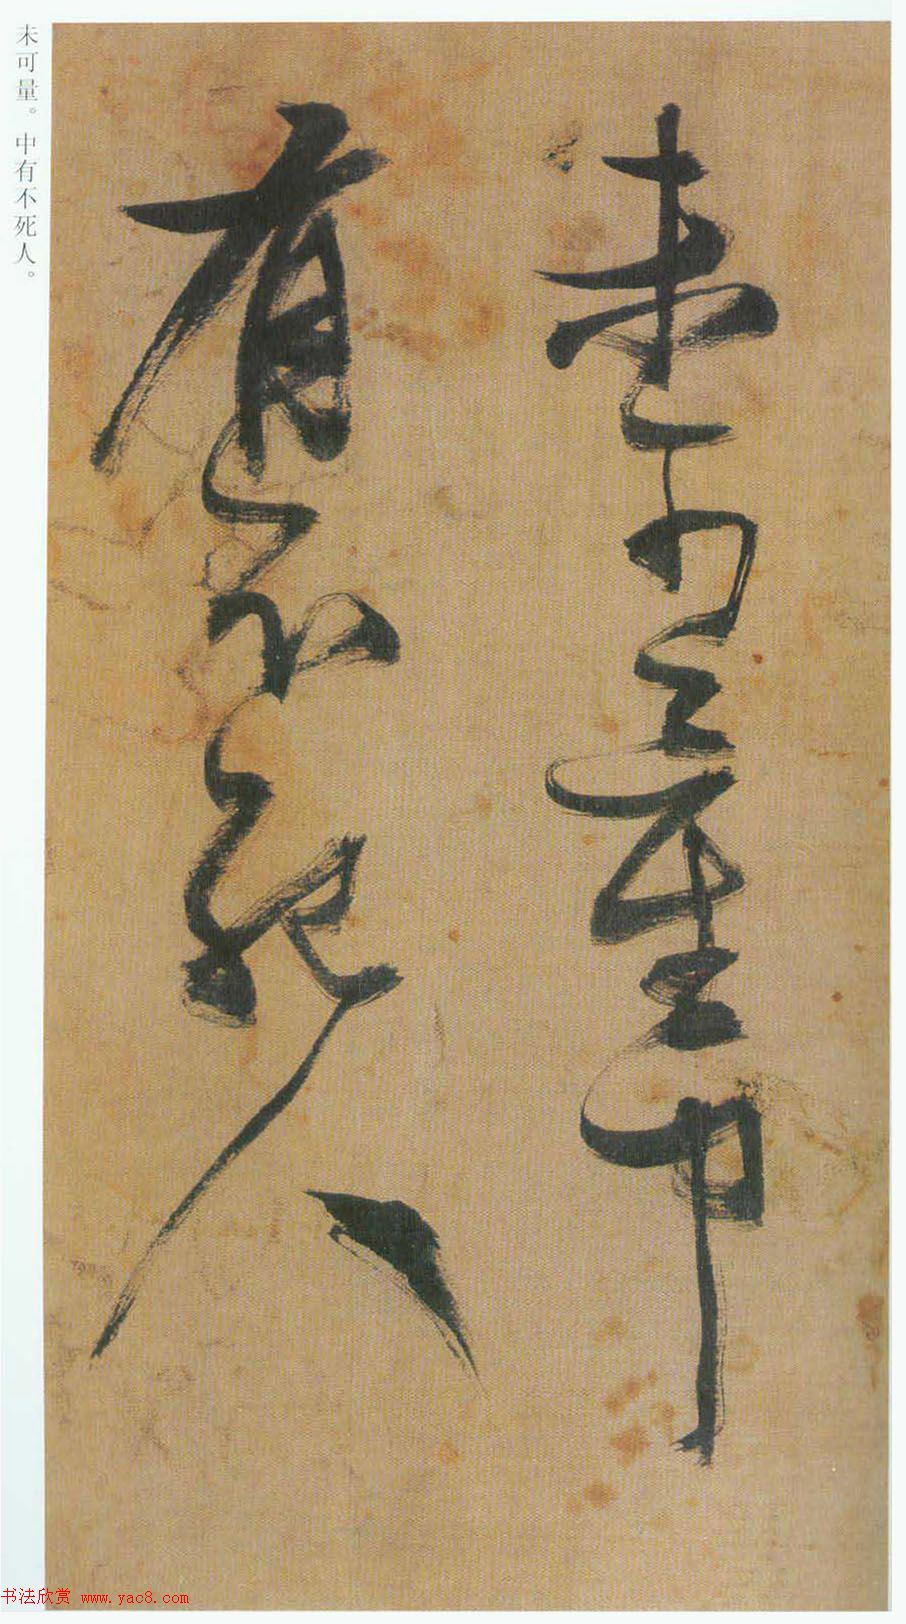 未可量中
有不死人
未可量。中有不死人。
书法欣赏 www.yac8.com